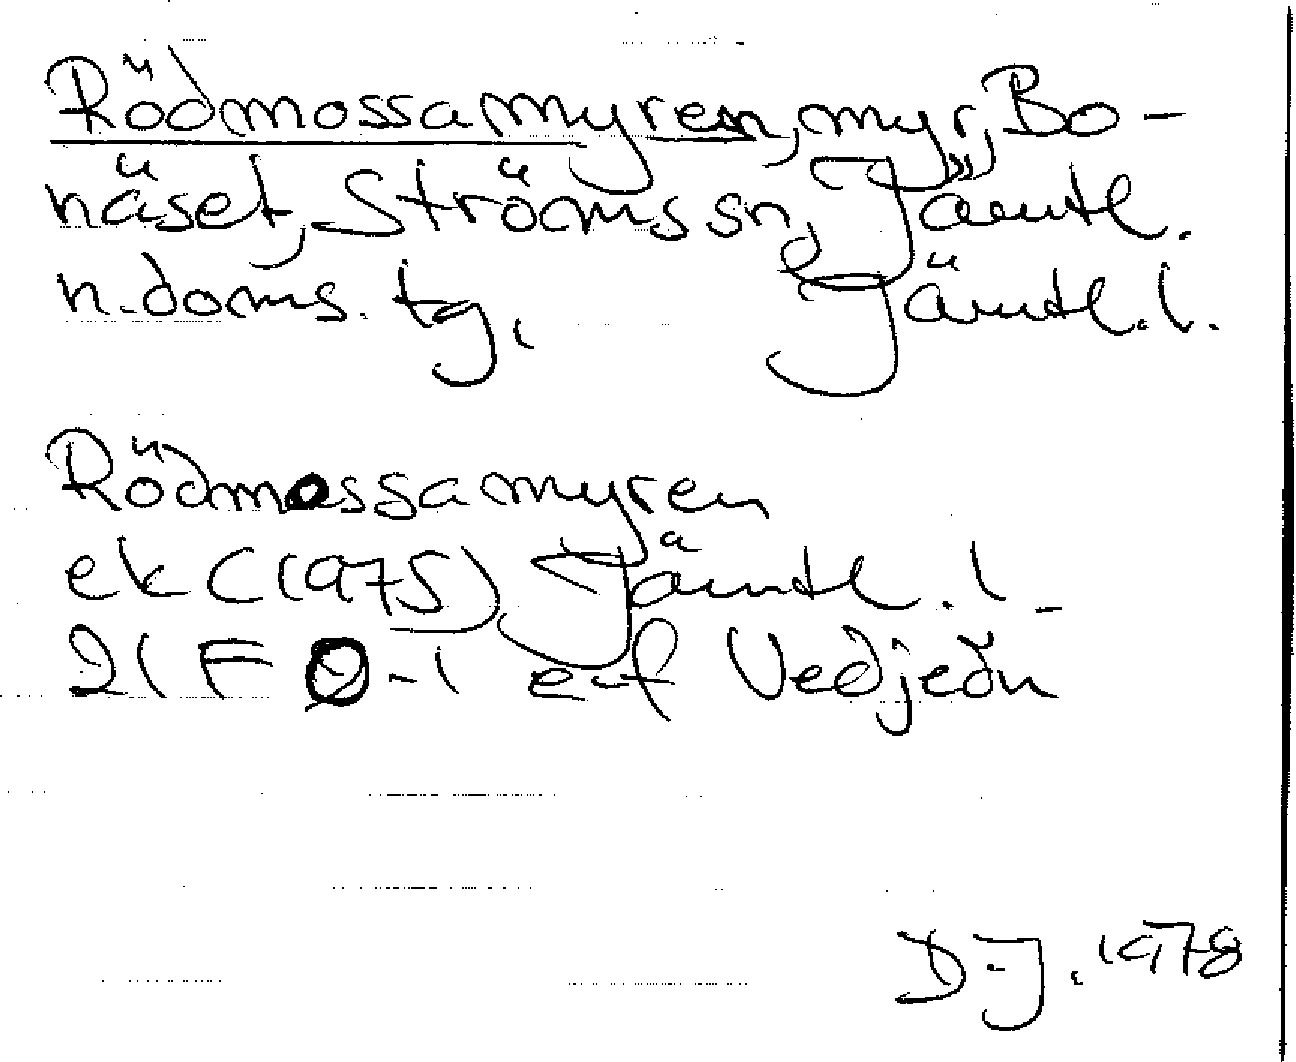 Rödmossamyren, myr, Bo-
näset, Ströms sn, Jämtl.
n. doms. tg, Jämtl. l.
Rödmossamyren
ek C (1975) Jämtl. l.
21 F 0-1 e-f Vedjeön
D-J. 1978